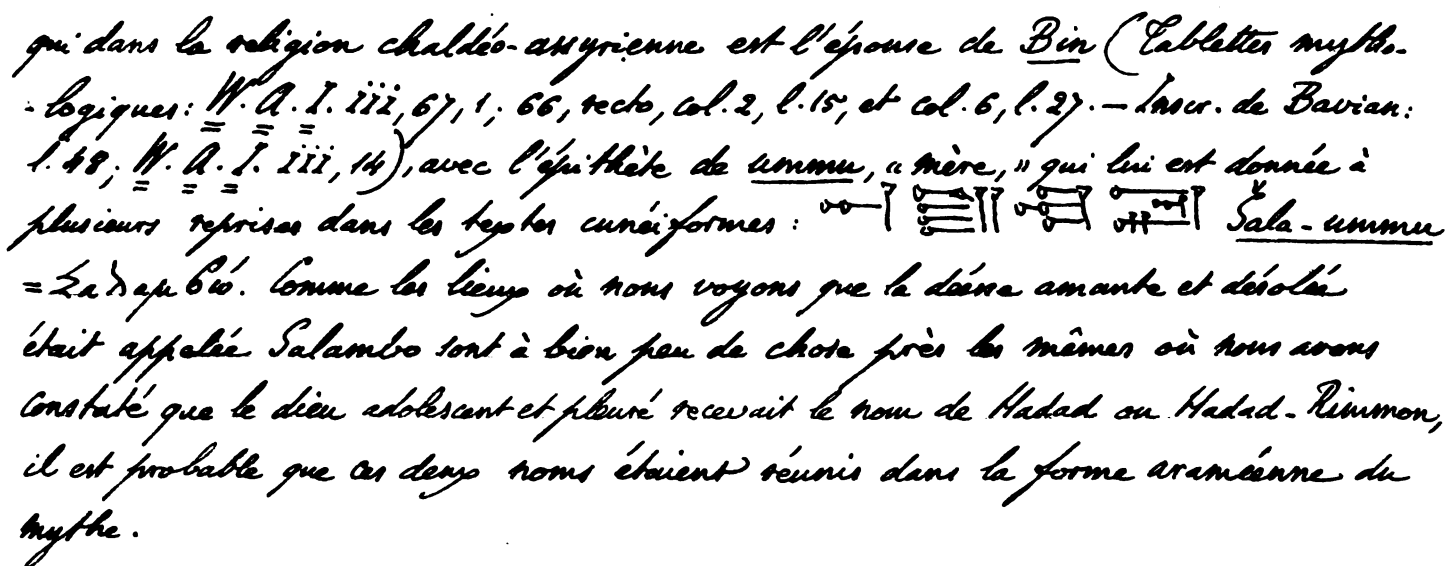 qui dans la religion chaldéo-assyrienne est l'épouse de Bin (Tablettes mytho-
-logiques: W. A. I. iii, 67, 1; 66, recto, col. 2, l. 15, et col. 6, l. 27. — Inscr. de Bavian:
l. 48; W. A. I. iii, 14), avec l'épithète de ummu, « mère, » qui lui est donnée à
plusieurs reprises dans les textes cunéiformes : Šala-ummu
= Σαλαμβώ. Comme les lieux où nous voyons que la déesse amante et désolée
était appelée Salambo sont à bien peu de chose près les mêmes où nous avons
constaté que le dieu adolescent et pleuré recevait le nom de Hadad ou Hadad-Rimmon,
il est probable que ces deux noms étaient réunis dans la forme araméenne du
mythe.